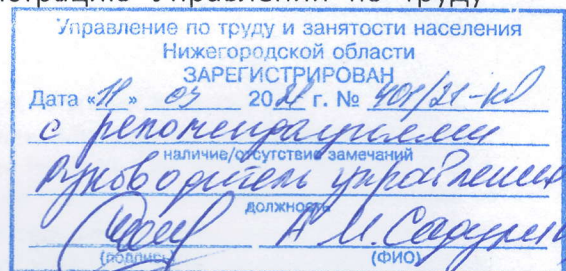 Управлении по труду
Управление по труду и занятости населения
Нижегородской области
ЗАРЕГИСТРИРОВАН
Дата «11» 03 2021 г. № 401/21-КД
с рекомендациями
наличие/отсутствие замечаний
Руководитель управления
должность
А.М. Садулина
(подпись) (ФИО)